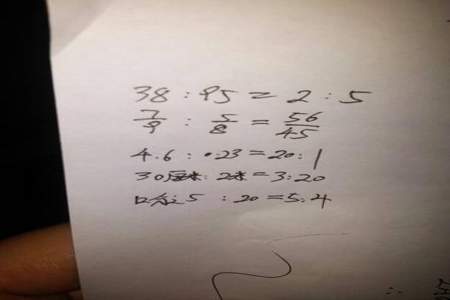 38 : 95 = 2 : 5
7/9 : 5/8 = 56/45
4.6 : .23 = 20 : 1
30厘米 : 2米 = 3 : 20
5 : 20 = 5 : 4